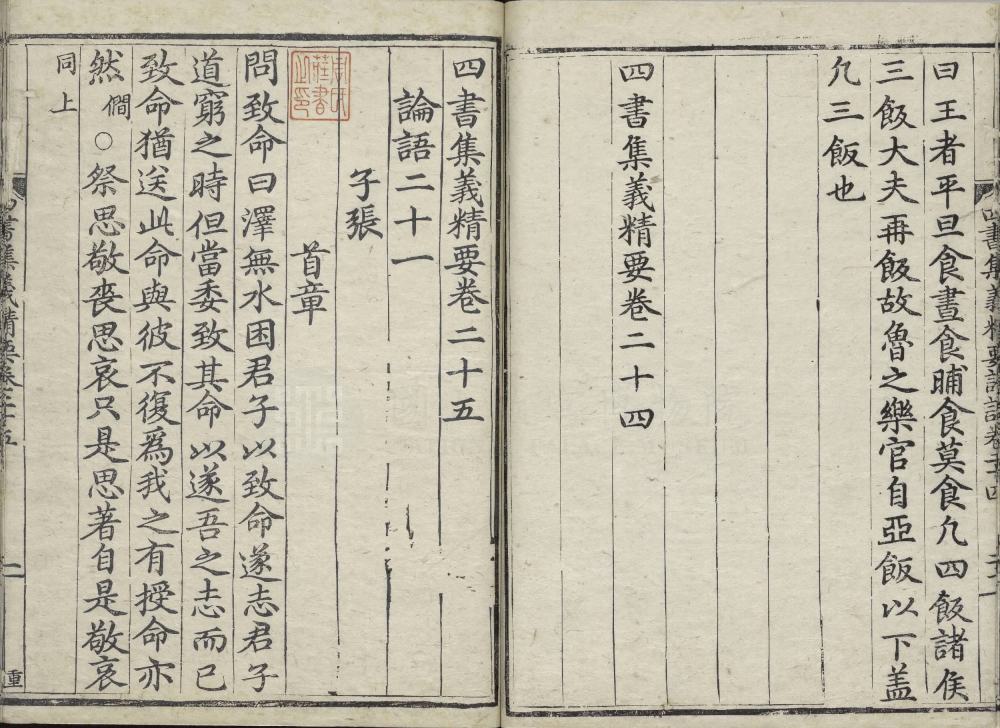 曰王者平旦食晝食晡食莫食凢四飯諸侯
三飯大夫再飯故魯之樂官自亞飯以下盖
凢三飯也
四書集義精要卷二十四
四書集義精要卷二十五
論語二十一
子張
首章
問致命曰澤無水困君子以致命遂志君子
道窮之時但當委致其命以遂吾之志而已
致命猶送此命與彼不復爲我之有授命亦
然僩○祭思敬喪思哀只是思著自是敬哀
同上
重